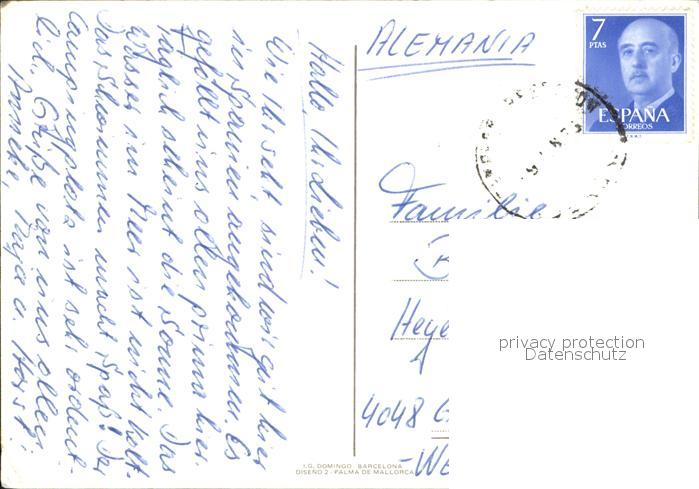 Hallo, Ihr Lieben!
Wie Ihr seht, sind wir gut hier
in Spanien angekommen. Es
gefällt uns allen prima hier.
Täglich scheint die Sonne. Das
Wasser im Meer ist nicht kalt.
Das Schwimmen macht Spaß! Der
Campingplatz ist sehr ordent-
lich. Grüße von uns allen
Anneke, Maja u. Horst!
ALEMANIA
7
PTAS
ESPAÑA
CORREOS
Familie
Heye
4048 G
-WE
privacy protection
Datenschutz
I.G. DOMINGO BARCELONA
DISEÑO 2 - PALMA DE MALLORCA